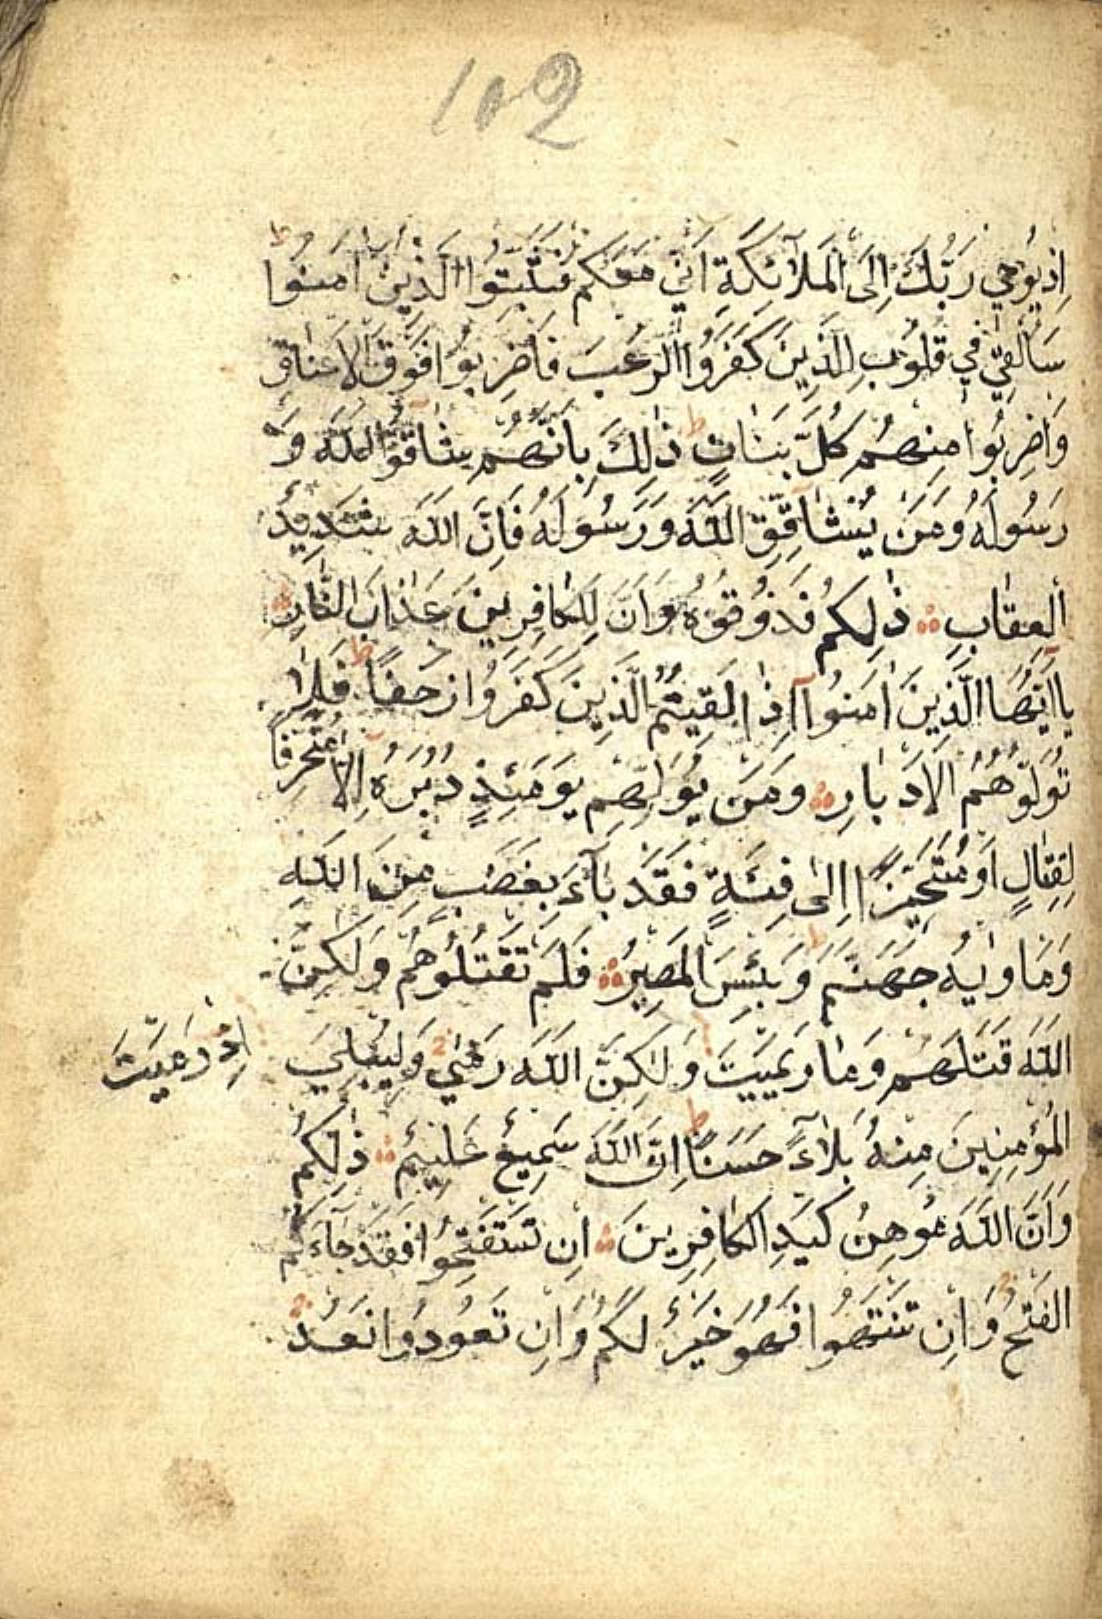 102
اِذْ يُوحِي رَبُّكَ اِلَى الْمَلٰٓئِكَةِ اَنِّي مَعَكُمْ فَثَبِّتُوا الَّذِينَ اٰمَنُوا ط
سَاُلْقِي فِي قُلُوبِ الَّذِينَ كَفَرُوا الرُّعْبَ فَاضْرِبُوا فَوْقَ الْاَعْنَاقِ
وَاضْرِبُوا مِنْهُمْ كُلَّ بَنَانٍ ط ذٰلِكَ بِاَنَّهُمْ شَاقُّوا اللّٰهَ وَ
رَسُولَهُ وَمَنْ يُشَاقِقِ اللّٰهَ وَرَسُولَهُ فَاِنَّ اللّٰهَ شَدِيدُ
الْعِقَابِ ذٰلِكُمْ فَذُوقُوهُ وَاَنَّ لِلْكَافِرِينَ عَذَابَ النَّارِ
يَا اَيُّهَا الَّذِينَ اٰمَنُوا اِذَا لَقِيتُمُ الَّذِينَ كَفَرُوا زَحْفًا ط فَلَا
تُوَلُّوهُمُ الْاَدْبَارِ وَمَنْ يُوَلِّهِمْ يَوْمَئِذٍ دُبُرَهُ اِلَّا مُتَحَرِّفًا
لِقِتَالٍ اَوْ مُتَحَيِّزًا اِلٰى فِئَةٍ فَقَدْ بَآءَ بِغَضَبٍ مِنَ اللّٰهِ
وَمَاْوٰيهُ جَهَنَّمُ ط وَبِئْسَ الْمَصِيرُ فَلَمْ تَقْتُلُوهُمْ وَلٰكِنَّ
اللّٰهَ قَتَلَهُمْ وَمَا رَمَيْتَ وَلٰكِنَّ اللّٰهَ رَمٰى وَلِيُبْلِيَ
اِذْ رَمَيْتَ
الْمُؤْمِنِينَ مِنْهُ بَلَآءً حَسَنًا ط اِنَّ اللّٰهَ سَمِيعٌ عَلِيمٌ ذٰلِكُمْ
وَاَنَّ اللّٰهَ مُوهِنُ كَيْدِ الْكَافِرِينَ اِنْ تَسْتَفْتِحُوا فَقَدْ جَآءَكُمُ
الْفَتْحُ وَاِنْ تَنْتَهُوا فَهُوَ خَيْرٌ لَكُمْ وَاِنْ تَعُودُوا نَعُدْ